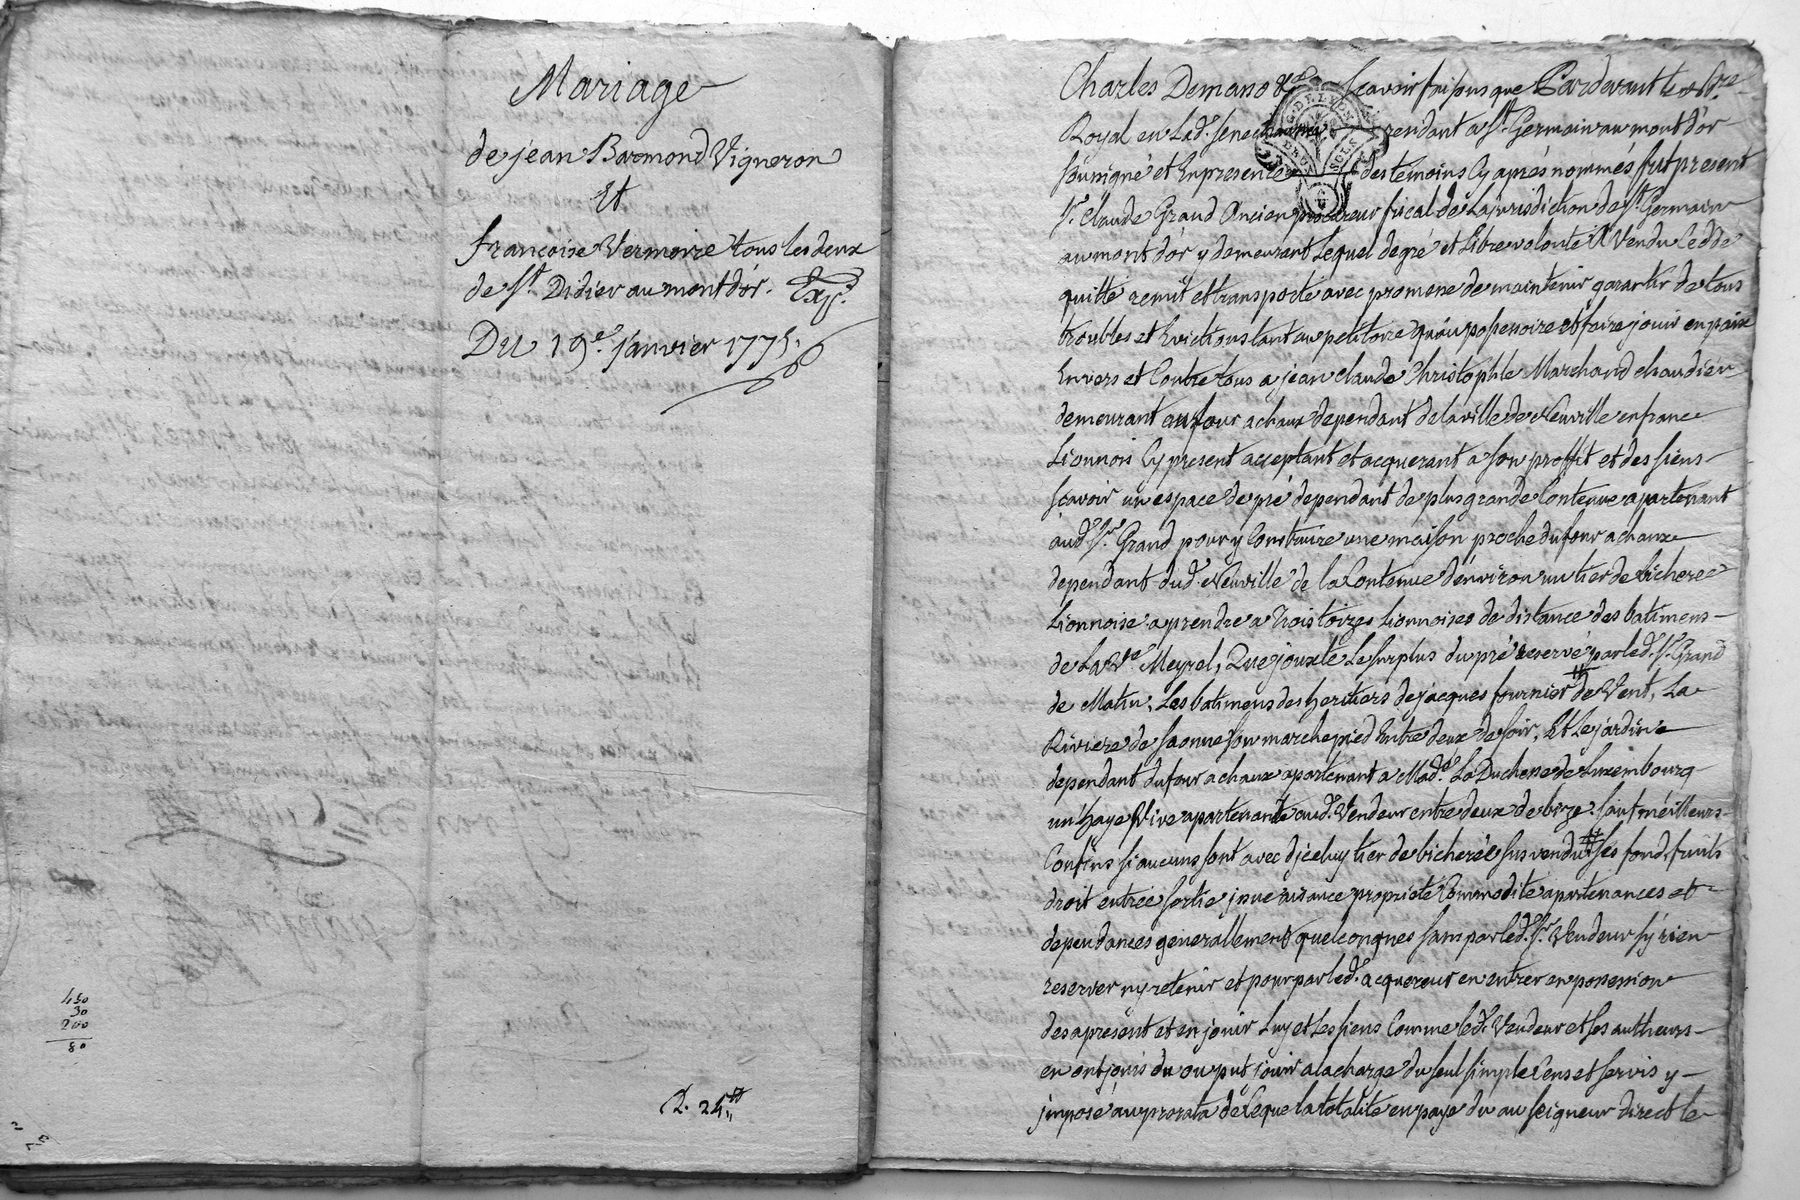 Mariage
de jean Barmond Vigneron
Et
francoise Vermorre tous les deux
de St. Didier au mont d'or. Exp.
Du 19e. janvier 1775.
450
30
200
80
R. 24
Charles Demano &a scavoir faisons que Pardevant le Nre
Royal en Lad. senechaussée rendant a St. Germain au mont d'or
sousigné et En presence des temoins Cy aprés nommés fut present
Sr. Claude Grand Ancien procureur fiscal de La jurisdiction de St. Germain
au mont d'or y demeurant Lequel de gré et Libre volonté A Vendu Cedde
quitte remit et transporte avec promesse de maintenir garantir de tous
troubles et Evictions tant au petitoire qu'au possessoire et faire jouir en paix
Envers et Contre tous a jean claude Christophle Marchand chaudier
demeurant au four a chaux dependant de la ville de Neuville en franc
Lionnois Cy present acceptant et acquerant a son proffit et des siens
scavoir un espace de pré dependant de plus grande Contenue apartenant
aud. Sr. Grand pour y Construire une maison proche du four a chaux
dependant dud. Neuville de la Contenue d'environ un tier de bicheree
Lionnoise a prendre a Trois toizes Lionnoises de distance des batimens
de La Ve Meyrel, Que jouxte Le surplus du pré reservé par led. Sr. Grand
de Matin, Les batimens des heritiers de jacques fournier # de Vent, La
Riviere de saonne son marchepied Entre deux de soir, Et Le jardin
dependant du four a chaux apartenant a Mad.e La Duchesse de Luxembourg
un haye Vive apartenante aud. Vendeur entre deux de bize. sauf meilleurs
Confins si aucuns sont avec d'jceluy tier de bicherée sus vendu # ses fond, fruits
droit entrée sortie jssue aisance proprieté Commodité apartenances et
dependances generallement quelconques sans par led. Sr. Vendeur s'y rien
reserver ny retenir et pour par led. acquereur en entrer en possession
des apresent et en jouir Luy et Les siens Comme led. Vendeur et ses autheurs
en ont jouis du ou put jouir a la charge du seul simple Cens et servis y
jmposé au prorata de Ce que la totalité en paye du au seigneur direct le